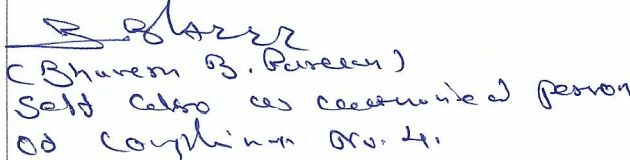 (Bhavesh B. Pareen)
Self also as authorised person
of Complainant No. 4.